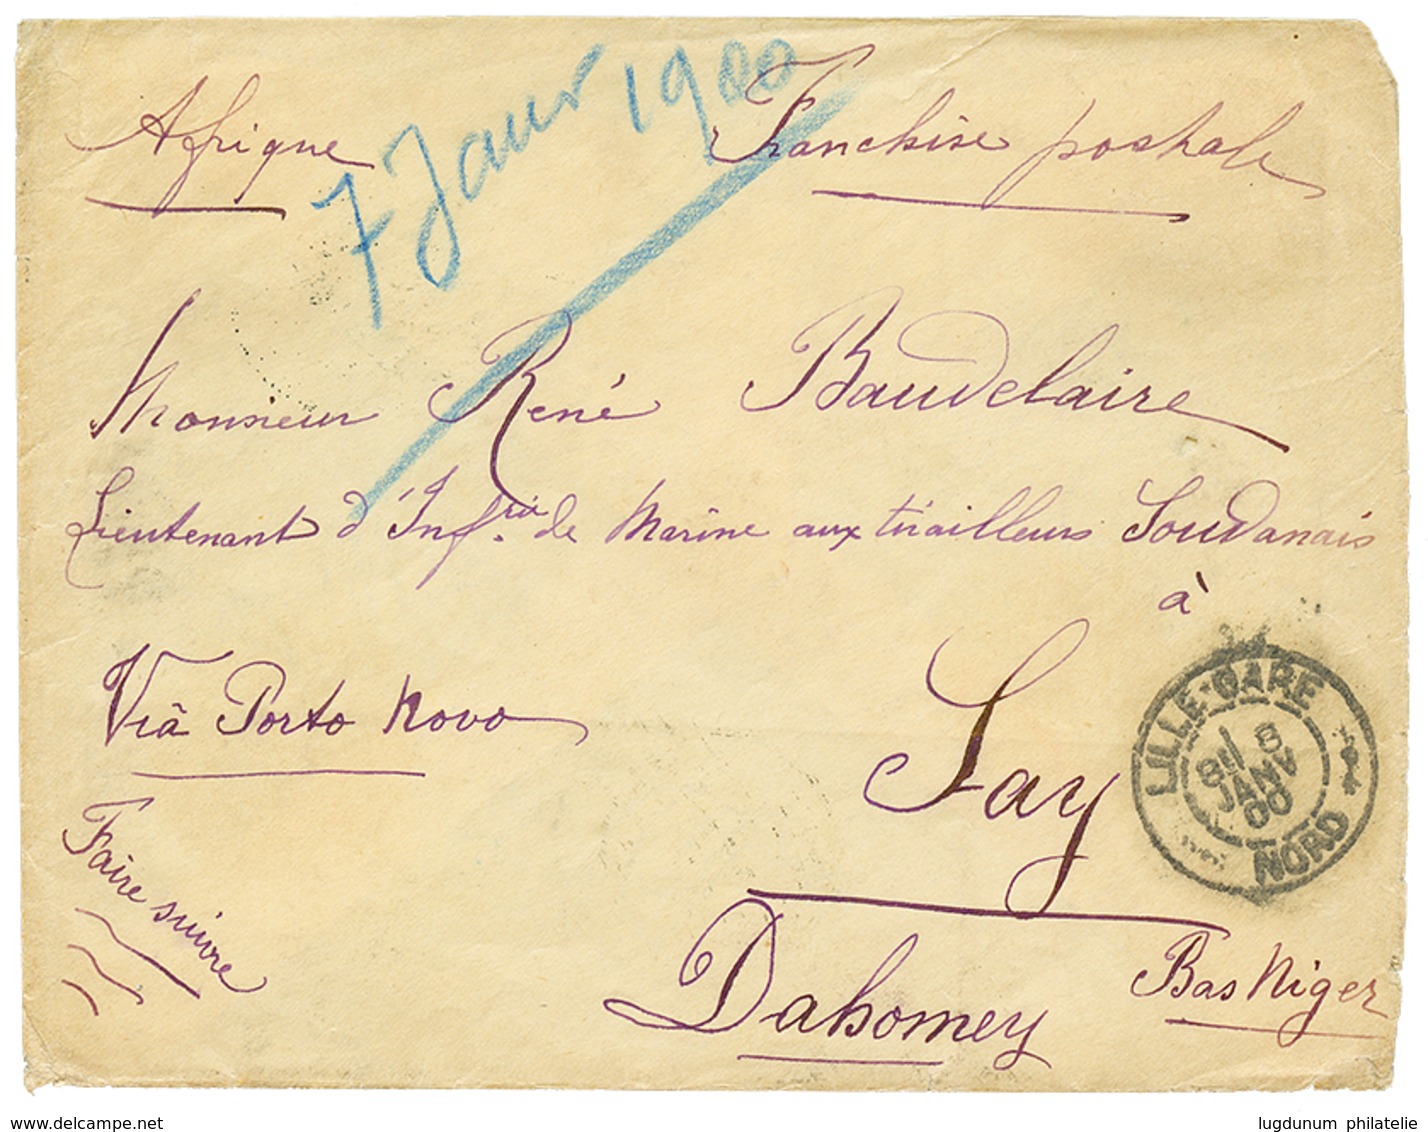 Afrique
7 Janvr 1900
Franchise postale
Monsieur René Baudelaire
Lieutenant d'Infrie de Marine aux tirailleurs Soudanais
à
Say
Viâ Porto Novo
LILLE-GARE
8
JANV
00
NORD
Faire suivre
Dahomey
Bas Niger
www.delcampe.net
lugdunum philatelie